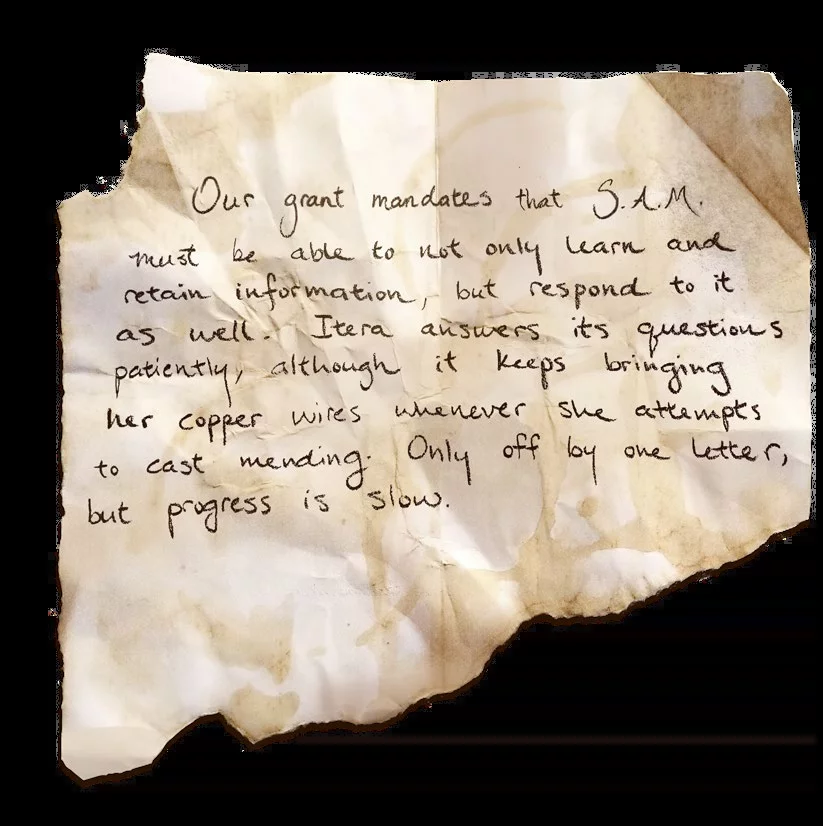 Our grant mandates that S.A.M.
must be able to not only learn and
retain information, but respond to it
as well. Itera answers its questions
patiently, although it keeps bringing
her copper wires whenever she attempts
to cast mending. Only off by one letter,
but progress is slow.